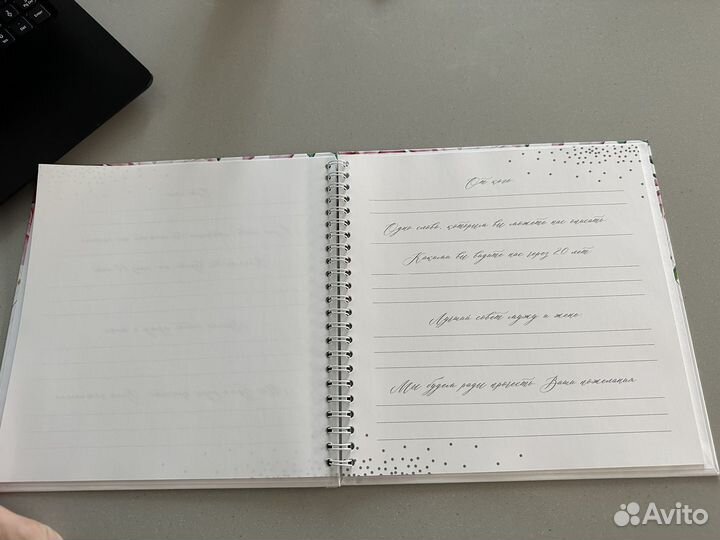 От кого
Одно слово, которым вы можете нас описать
Какими вы видите нас через 20 лет
Лучший совет мужу и жене
Мы будем рады прочесть Ваши пожелания
Avito